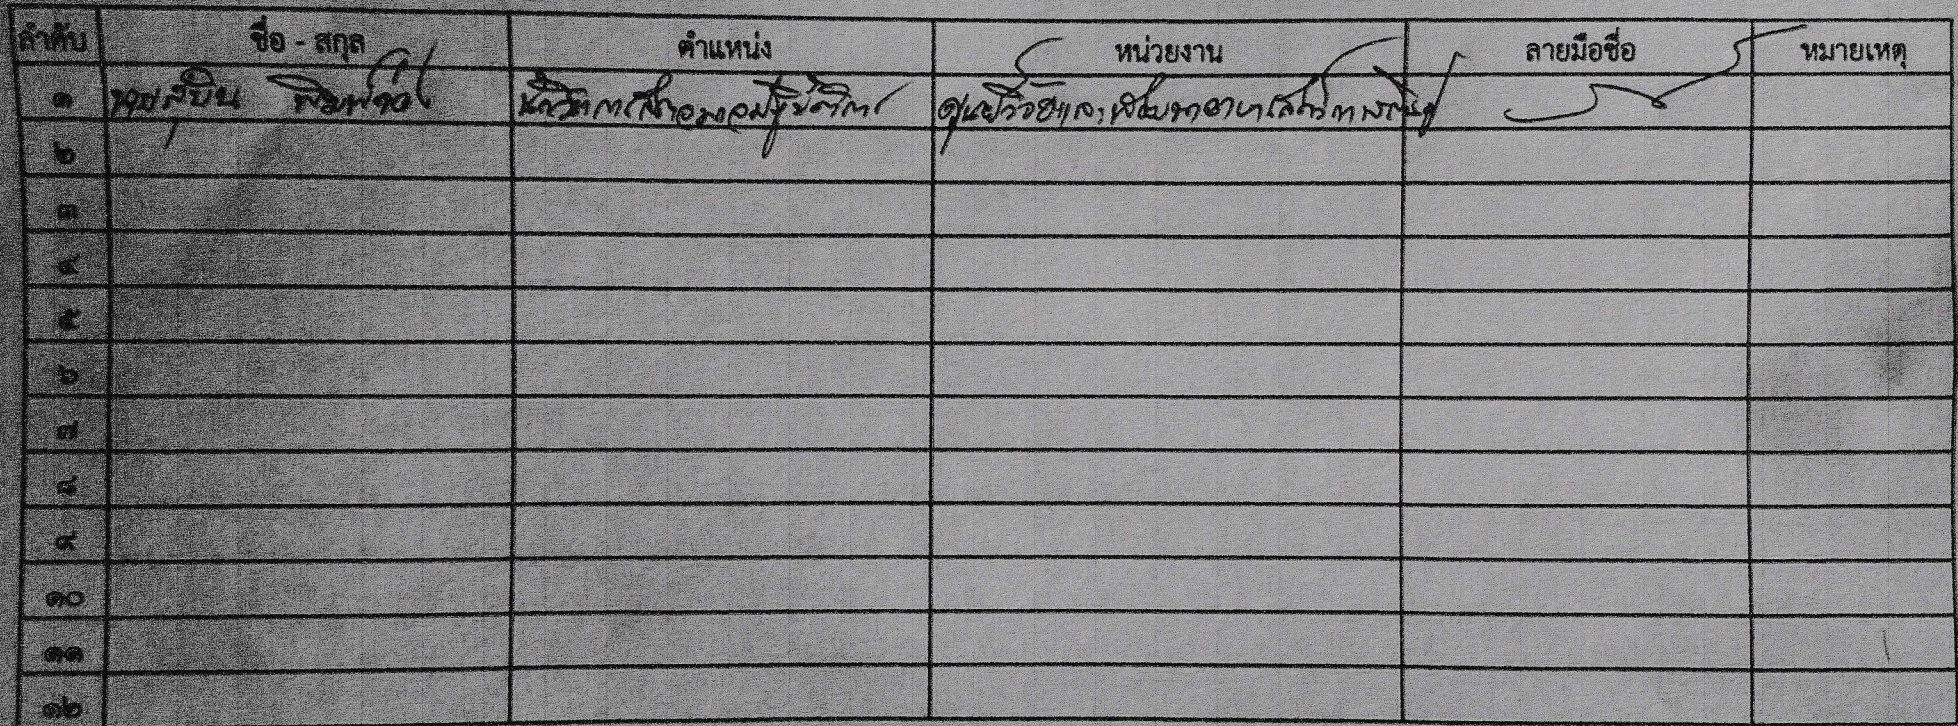 ลำดับ ชื่อ - สกุล ตำแหน่ง หน่วยงาน ลายมือชื่อ หมายเหตุ
๑ นายสุบิน นักวิชาการสัตวบาลปฏิบัติการ ศูนย์วิจัยและพัฒนาอาหารสัตว์
๒
๓
๔
๕
๖
๗
๘
๙
๑๐
๑๑
๑๒